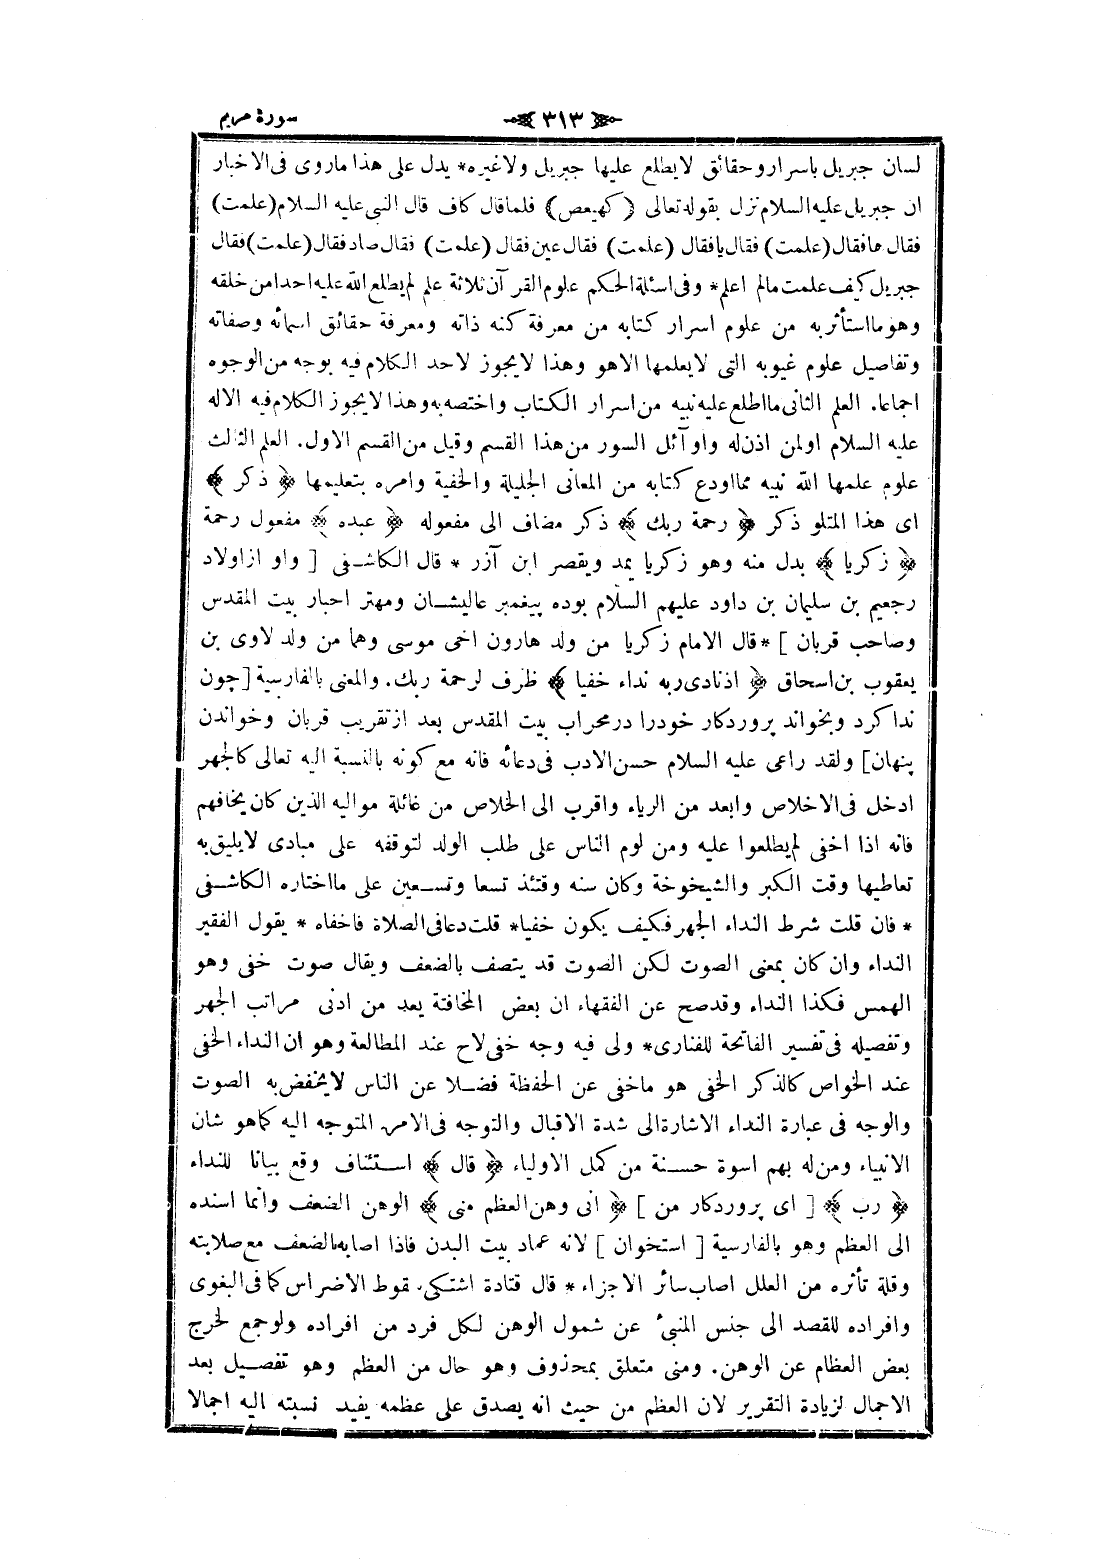 سورۀ مريم
٣١٣
لسان جبريل باسرار وحقائق لايطلع عليها جبريل ولاغيره* يدل على هذا ماروى فى الاخبار
ان جبريل عليه السلام نزل بقوله تعالى (كهيعص) فلما قال كاف قال النبى عليه السلام (علمت)
فقال ها فقال (علمت) فقال يا فقال (علمت) فقال عين فقال (علمت) فقال صاد فقال (علمت) فقال
جبريل كيف علمت مالم اعلم* وفى اسئلة الحكم علوم القرآن ثلاثة علم لم يطلع الله عليه احدا من خلقه
وهو ما استأثر به من علوم اسرار كتابه من معرفة كنه ذاته ومعرفة حقائق اسمائه وصفاته
وتفاصيل علوم غيوبه التى لايعلمها الا هو وهذا لايجوز لاحد الكلام فيه بوجه من الوجوه
اجماعا. العلم الثانى ما اطلع عليه نبيه من اسرار الكتاب واختصه به وهذا لايجوز الكلام فيه الاله
عليه السلام اولمن اذن له واوآئل السور من هذا القسم وقيل من القسم الاول. العلم الثالث
علوم علمها الله نبيه مما اودع كتابه من المعانى الجليلة والخفية وامره بتعليمها ﴿ ذكر ﴾
اى هذا المتلو ذكر ﴿ رحمة ربك ﴾ ذكر مضاف الى مفعوله ﴿ عبده ﴾ مفعول رحمة
﴿ زكريا ﴾ بدل منه وهو زكريا يمد ويقصر ابن آزر * قال الكاشفى [ واو ازاولاد
رجعيم بن سليمان بن داود عليهم السلام بوده پيغمبر عاليشان ومهتر احبار بيت المقدس
وصاحب قربان ] * قال الامام زكريا من ولد هارون اخى موسى وهما من ولد لاوى بن
يعقوب بن اسحاق ﴿ اذنادى ربه نداء خفيا ﴾ ظرف لرحمة ربك. والمعنى بالفارسية [چون
ندا كرد وبخواند پروردكار خودرا درمحراب بيت المقدس بعد ازتقريب قربان وخواندن
پنهان] ولقد راعى عليه السلام حسن الادب فى دعائه فانه مع كونه بالنسبة اليه تعالى كالجهر
ادخل فى الاخلاص وابعد من الرياء واقرب الى الخلاص من غائلة مواليه الذين كان يخافهم
فانه اذا اخفى لم يطلعوا عليه ومن لوم الناس على طلب الولد لتوقفه على مبادى لايليق به
تعاطيها وقت الكبر والشيخوخة وكان سنه وقتئذ تسعا وتسعين على ما اختاره الكاشفى
* فان قلت شرط النداء الجهر فكيف يكون خفيا* قلت دعا فى الصلاة فاخفاه * يقول الفقير
النداء وان كان بمعنى الصوت لكن الصوت قد يتصف بالضعف ويقال صوت خفى وهو
الهمس فكذا النداء وقدصح عن الفقهاء ان بعض المخافتة يعد من ادنى مراتب الجهر
وتفصيله فى تفسير الفاتحة للفنارى* ولى فيه وجه خفى لاح عند المطالعة وهو ان النداء الخفى
عند الخواص كالذكر الخفى هو ماخفى عن الحفظة فضلا عن الناس لايخفض به الصوت
والوجه فى عبارة النداء الاشارة الى شدة الاقبال والتوجه فى الامر المتوجه اليه كما هو شان
الانبياء ومن له بهم اسوة حسنة من كمل الاولياء ﴿ قال ﴾ استئناف وقع بيانا للنداء
﴿ رب ﴾ [ اى پروردكار من ] ﴿ انى وهن العظم منى ﴾ الوهن الضعف وانما اسنده
الى العظم وهو بالفارسية [ استخوان ] لانه عماد بيت البدن فاذا اصابه الضعف مع صلابته
وقلة تأثره من العلل اصاب سائر الاجزاء * قال قتادة اشتكى سقوط الاضراس كما فى البغوى
وافراده للقصد الى جنس المنبئ عن شمول الوهن لكل فرد من افراده ولوجمع لخرج
بعض العظام عن الوهن. ومنى متعلق بمحذوف وهو حال من العظم وهو تفصيل بعد
الاجمال لزيادة التقرير لان العظم من حيث انه يصدق على عظمه يفيد نسبته اليه اجمالا